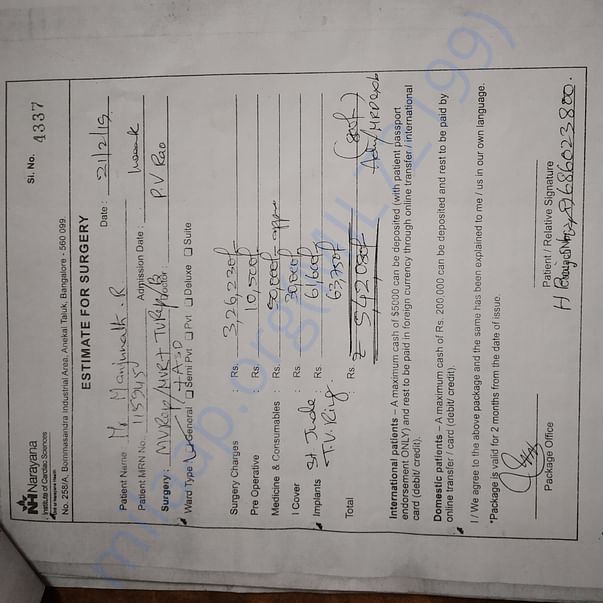 NH Narayana
Institute of Cardiac Sciences
Sl. No. 4337
No. 258/A, Bommasandra Industrial Area, Anekal Taluk, Bangalore - 560 099
ESTIMATE FOR SURGERY
Date : 21/2/19
Patient Name : Mr Manjunath . R
Patient MRN No. Admission Date : 1 week
Surgery : MVRep/MVR + TVRep Doctor : P.V Rao
Ward Type General Semi Pvt Pvt Deluxe Suite
Surgery Charges : Rs. 3,26,230/-
Pre Operative : Rs. 10,500/-
Medicine & Consumables : Rs. 50,000/- appx
I Cover : Rs. 30,000/-
Implants St Jude : 61,600/-
T.V. Ring. 63,750/-
Total Rs. 542080/-
International patients – A maximum cash of $5000 can be deposited (with patient passport
endorsement ONLY) and rest to be paid in foreign currency through online transfer / international
card (debit/ credit).
Domestic patients – A maximum cash of Rs. 200,000 can be deposited and rest to be paid by
online transfer / card (debit/ credit).
I / We agree to the above package and the same has been explained to me / us in our own language.
*Package is valid for 2 months from the date of issue.
9686023800.
Package Office
Patient / Relative Signature
milaap.org